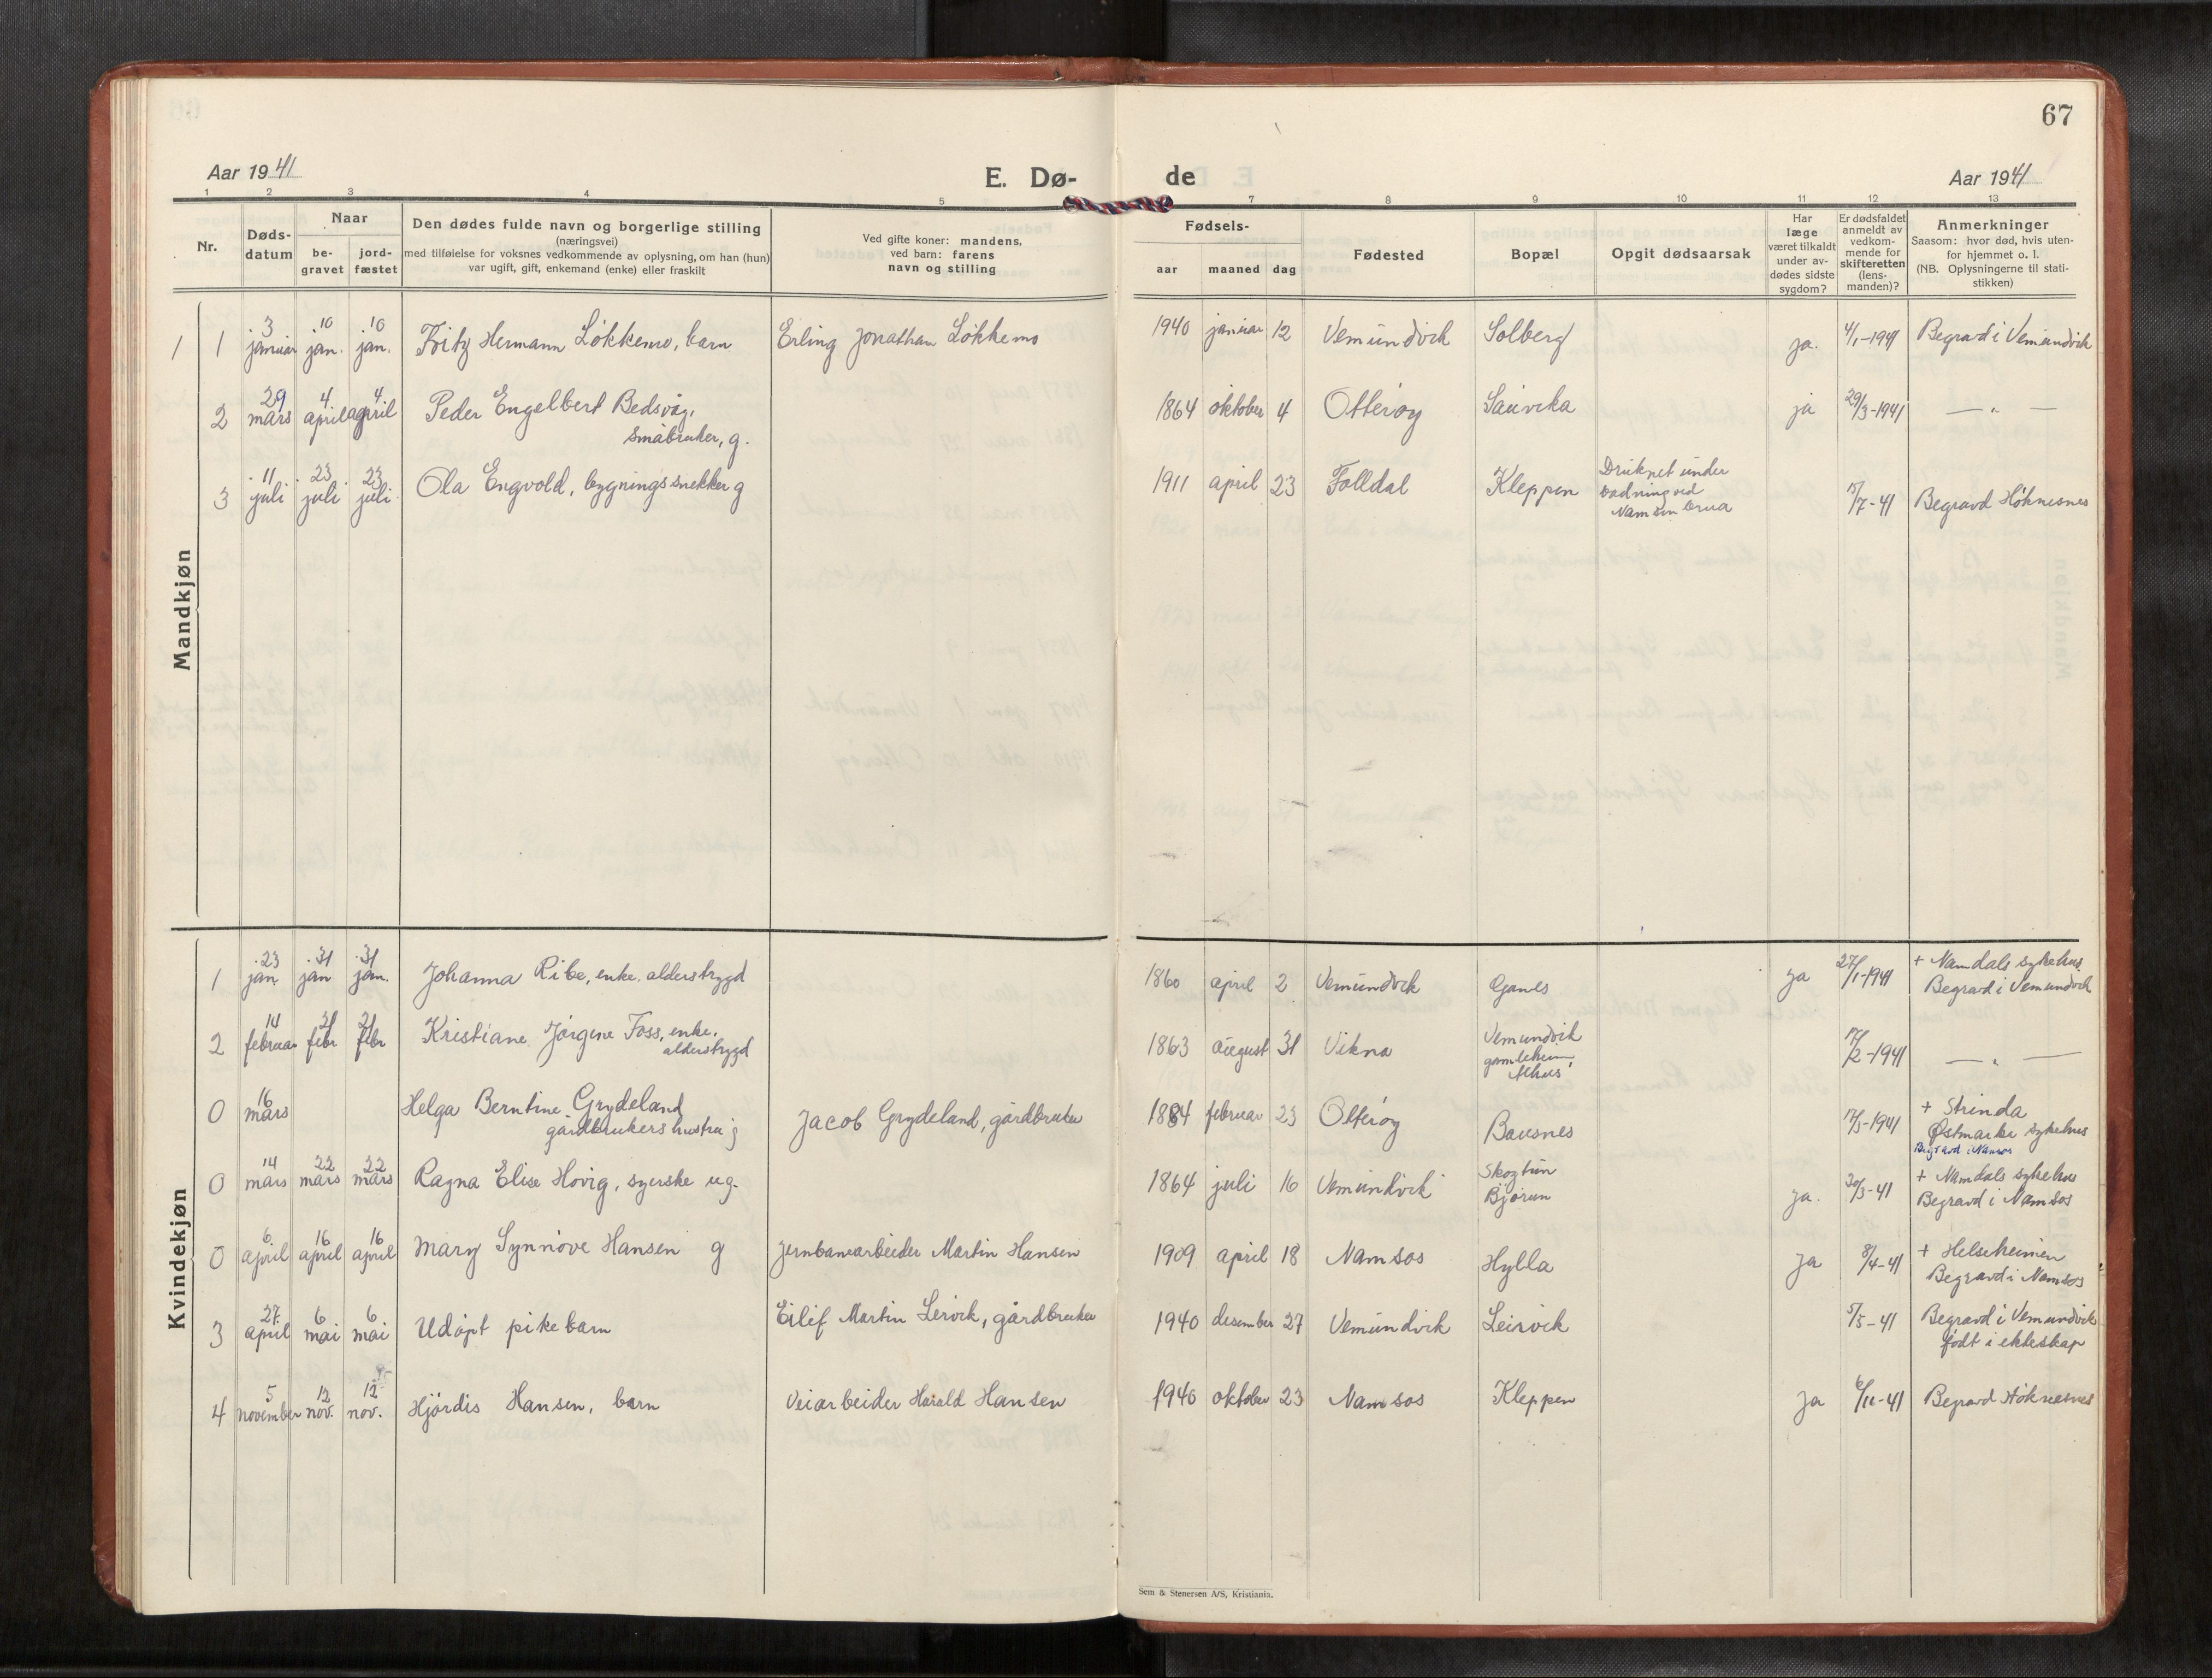 67
Aar 1941
E. Dø-
de
Aar 1941
1 2 3 4 5 7 8 9 10 11 12 13
Nr.
Døds-
datum
Naar
be-
gravet
jord-
fæstet
Den dødes fulde navn og borgerlige stilling
(næringsvei)
med tilføielse for voksnes vedkommende av oplysning, om han (hun)
var ugift, gift, enkemand (enke) eller fraskilt
Ved gifte koner: mandens,
ved barn: farens
navn og stilling
Fødsels-
aar maaned dag
Fødested
Bopæl
Opgit dødsaarsak
Har
læge
været tilkaldt
under av-
dødes sidste
sygdom?
Er dødsfaldet
anmeldt av
vedkom-
mende for
skifteretten
(lens-
manden)?
Anmerkninger
Saasom: hvor død, hvis uten-
for hjemmet o. l.
(NB. Oplysningerne til stati-
stikken)
Mandkjøn
1 1 3 januar 10 jan. 10 jan. Fritz Hermann Løkkemo, barn Erling Jonathan Løkkemo 1940 januar 12 Vemundvik Solberg ja. 4/1-1941 Begravd i Vemundvik
2 29 mars 4 april 4 april Peder Engelbert Bedsvåg,
småbruker, g. 1864 oktober 4 Otterøy Sauvika ja 29/3-1941 — " —
3 11 juli 23 juli 23 juli Ola Engvold, bygningssnekker g 1911 april 23 Folldal Kleppen Druknet under
badning ved
Namsenbrua 15/7-41 Begravd Høknesnes
Kvindekjøn
1 23 jan. 31 jan 31 jan. Johanna Ribe, enke, alderstrygd 1860 april 2 Vemundvik Ganes ja 27/1-1941 + Namdals sykehus.
Begravd i Vemundvik
2 14 februar 21 febr 21 febr Kristiane Jørgine Foss, enke,
alderstrygd 1863 august 31 Vikna Vemundvik
gamleheim,
17/2-1941 — " —
0 16 mars Helga Berntine Grydeland
gårdbrukers hustru g Jacob Grydeland, gårdbruker 1884 februar 23 Otterøy Bausnes 17/3-1941 + Strinda
Østmarka sykehus
Begravd i Namsos
0 14 mars 22 mars 22 mars Ragna Elise Hovig, syerske ug. 1864 juli 16 Vemundvik Skogtun
Bjørum ja. 20/3-41 + Namdals sykehus
Begravd i Namsos
0 6 april 16 april 16 april Mary Synnøve Hansen g Jernbanearbeider Martin Hansen 1909 april 18 Namsos Hylla ja 8/4-41 + Helseheimen
Begravd i Namsos
3 27 april 6 mai 6 mai Udøpt pikebarn Eilif Martin Lervik, gårdbruker 1940 desember 27 Vemundvik Leirvik 5/5-41 Begravd i Vemundvik
født i ekteskap
4 5 november 12 nov. 12 nov. Hjørdis Hansen, barn Veiarbeider Harald Hansen 1940 oktober 23 Namsos Kleppen ja 6/11-41 Begravd Høknesnes
Sem & Stenersen A/S, Kristiania.